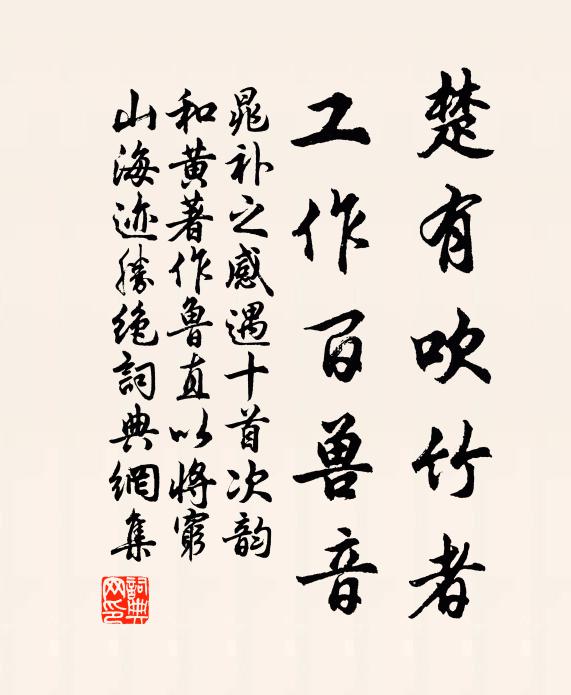 楚有吹竹者
工作百兽音
晁补之感遇十首次韵
和黄著作鲁直以将穷
山海迹胜绝詞典網集
詞典网印